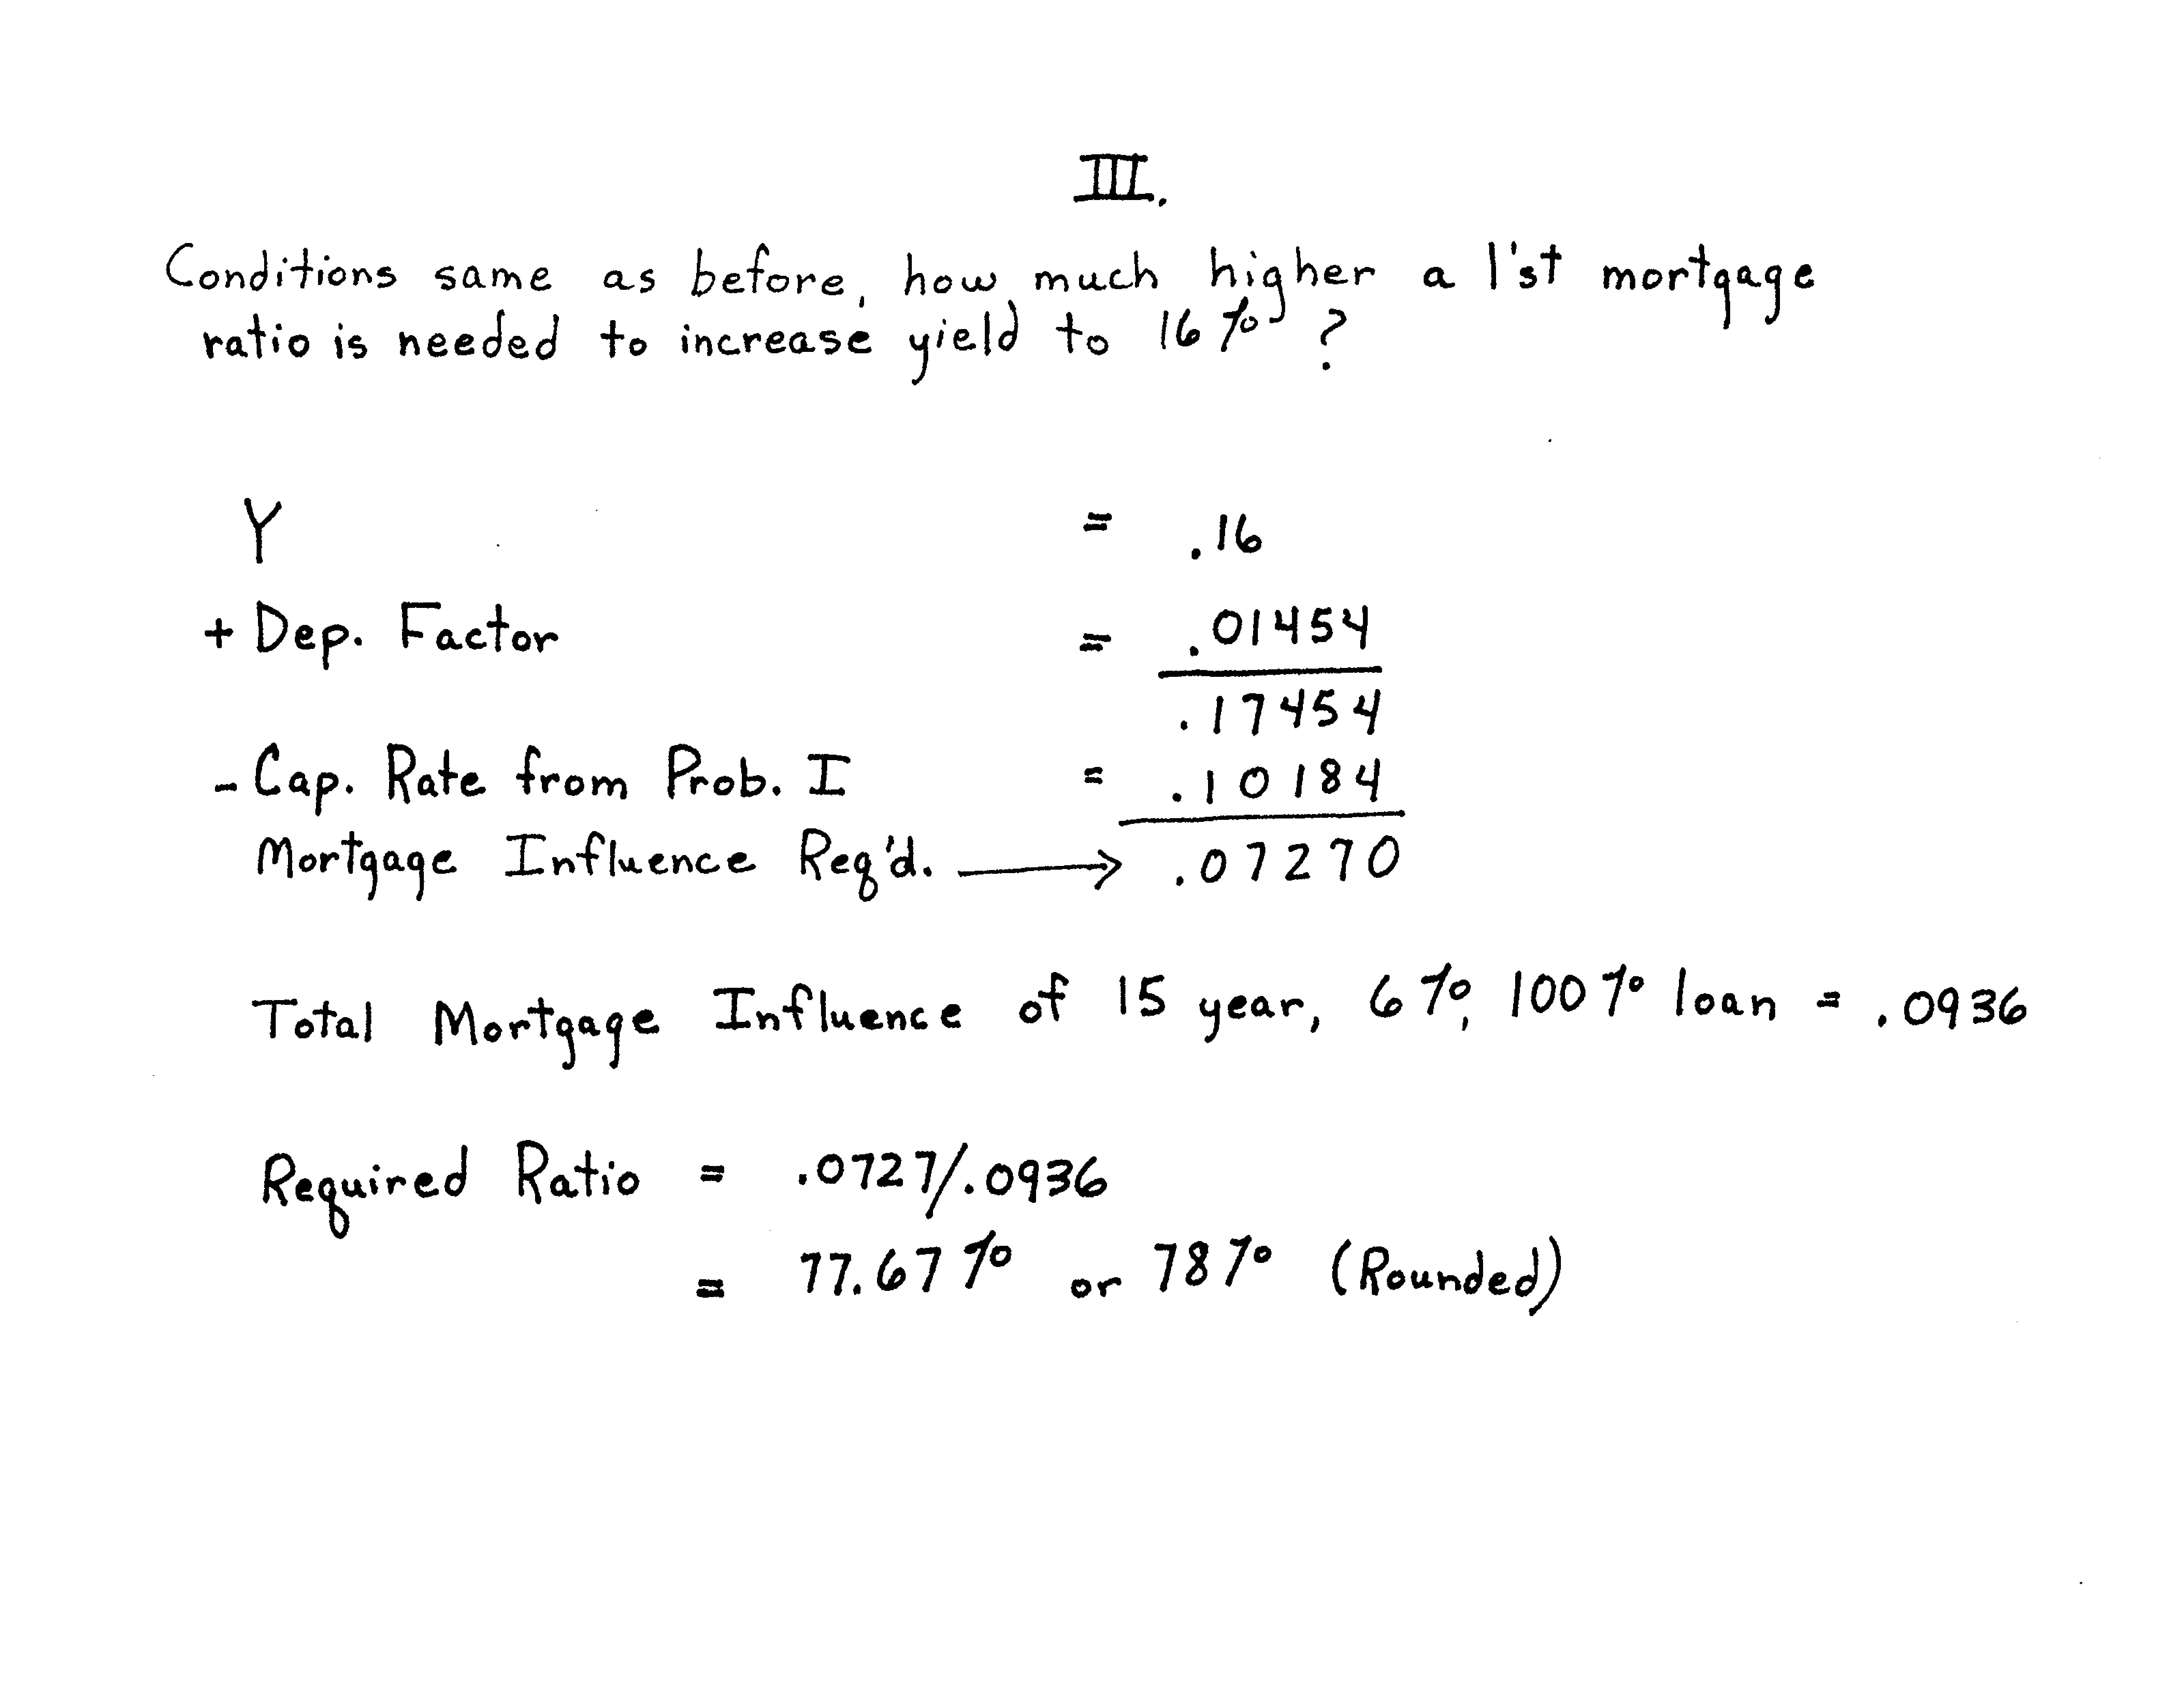 III.
Conditions same as before, how much higher a 1'st mortgage
ratio is needed to increase yield to 16% ?
Y = .16
+ Dep. Factor = .01454
.17454
- Cap. Rate from Prob. I = .10184
Mortgage Influence Req'd. → .07270
Total Mortgage Influence of 15 year, 6%, 100% loan = .0936
Required Ratio = .0727/.0936
= 77.67% or 78% (Rounded)